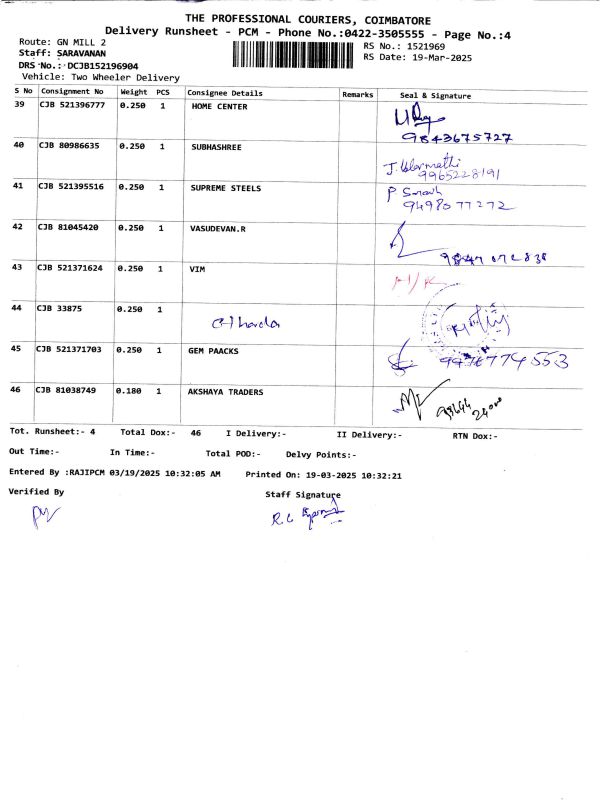 THE PROFESSIONAL COURIERS, COIMBATORE
Delivery Runsheet - PCM - Phone No.:0422-3505555 - Page No.:4
Route: GN MILL 2
RS No.: 1521969
Staff: SARAVANAN
RS Date: 19-Mar-2025
DRS No.: DCJB152196904
Vehicle: Two Wheeler Delivery
S No Consignment No Weight PCS Consignee Details Remarks Seal & Signature
39 CJB 521396777 0.250 1 HOME CENTER
9843675727
40 CJB 80986635 0.250 1 SUBHASHREE
9965228191
41 CJB 521395516 0.250 1 SUPREME STEELS
9498077272
42 CJB 81045420 0.250 1 VASUDEVAN.R
43 CJB 521371624 0.250 1 VIM
44 CJB 33875 0.250 1
45 CJB 521371703 0.250 1 GEM PAACKS
9976774553
46 CJB 81038749 0.180 1 AKSHAYA TRADERS
Tot. Runsheet:- 4 Total Dox:- 46 I Delivery:- II Delivery:- RTN Dox:-
Out Time:- In Time:- Total POD:- Delvy Points:-
Entered By :RAJIPCM 03/19/2025 10:32:05 AM Printed On: 19-03-2025 10:32:21
Verified By Staff Signature